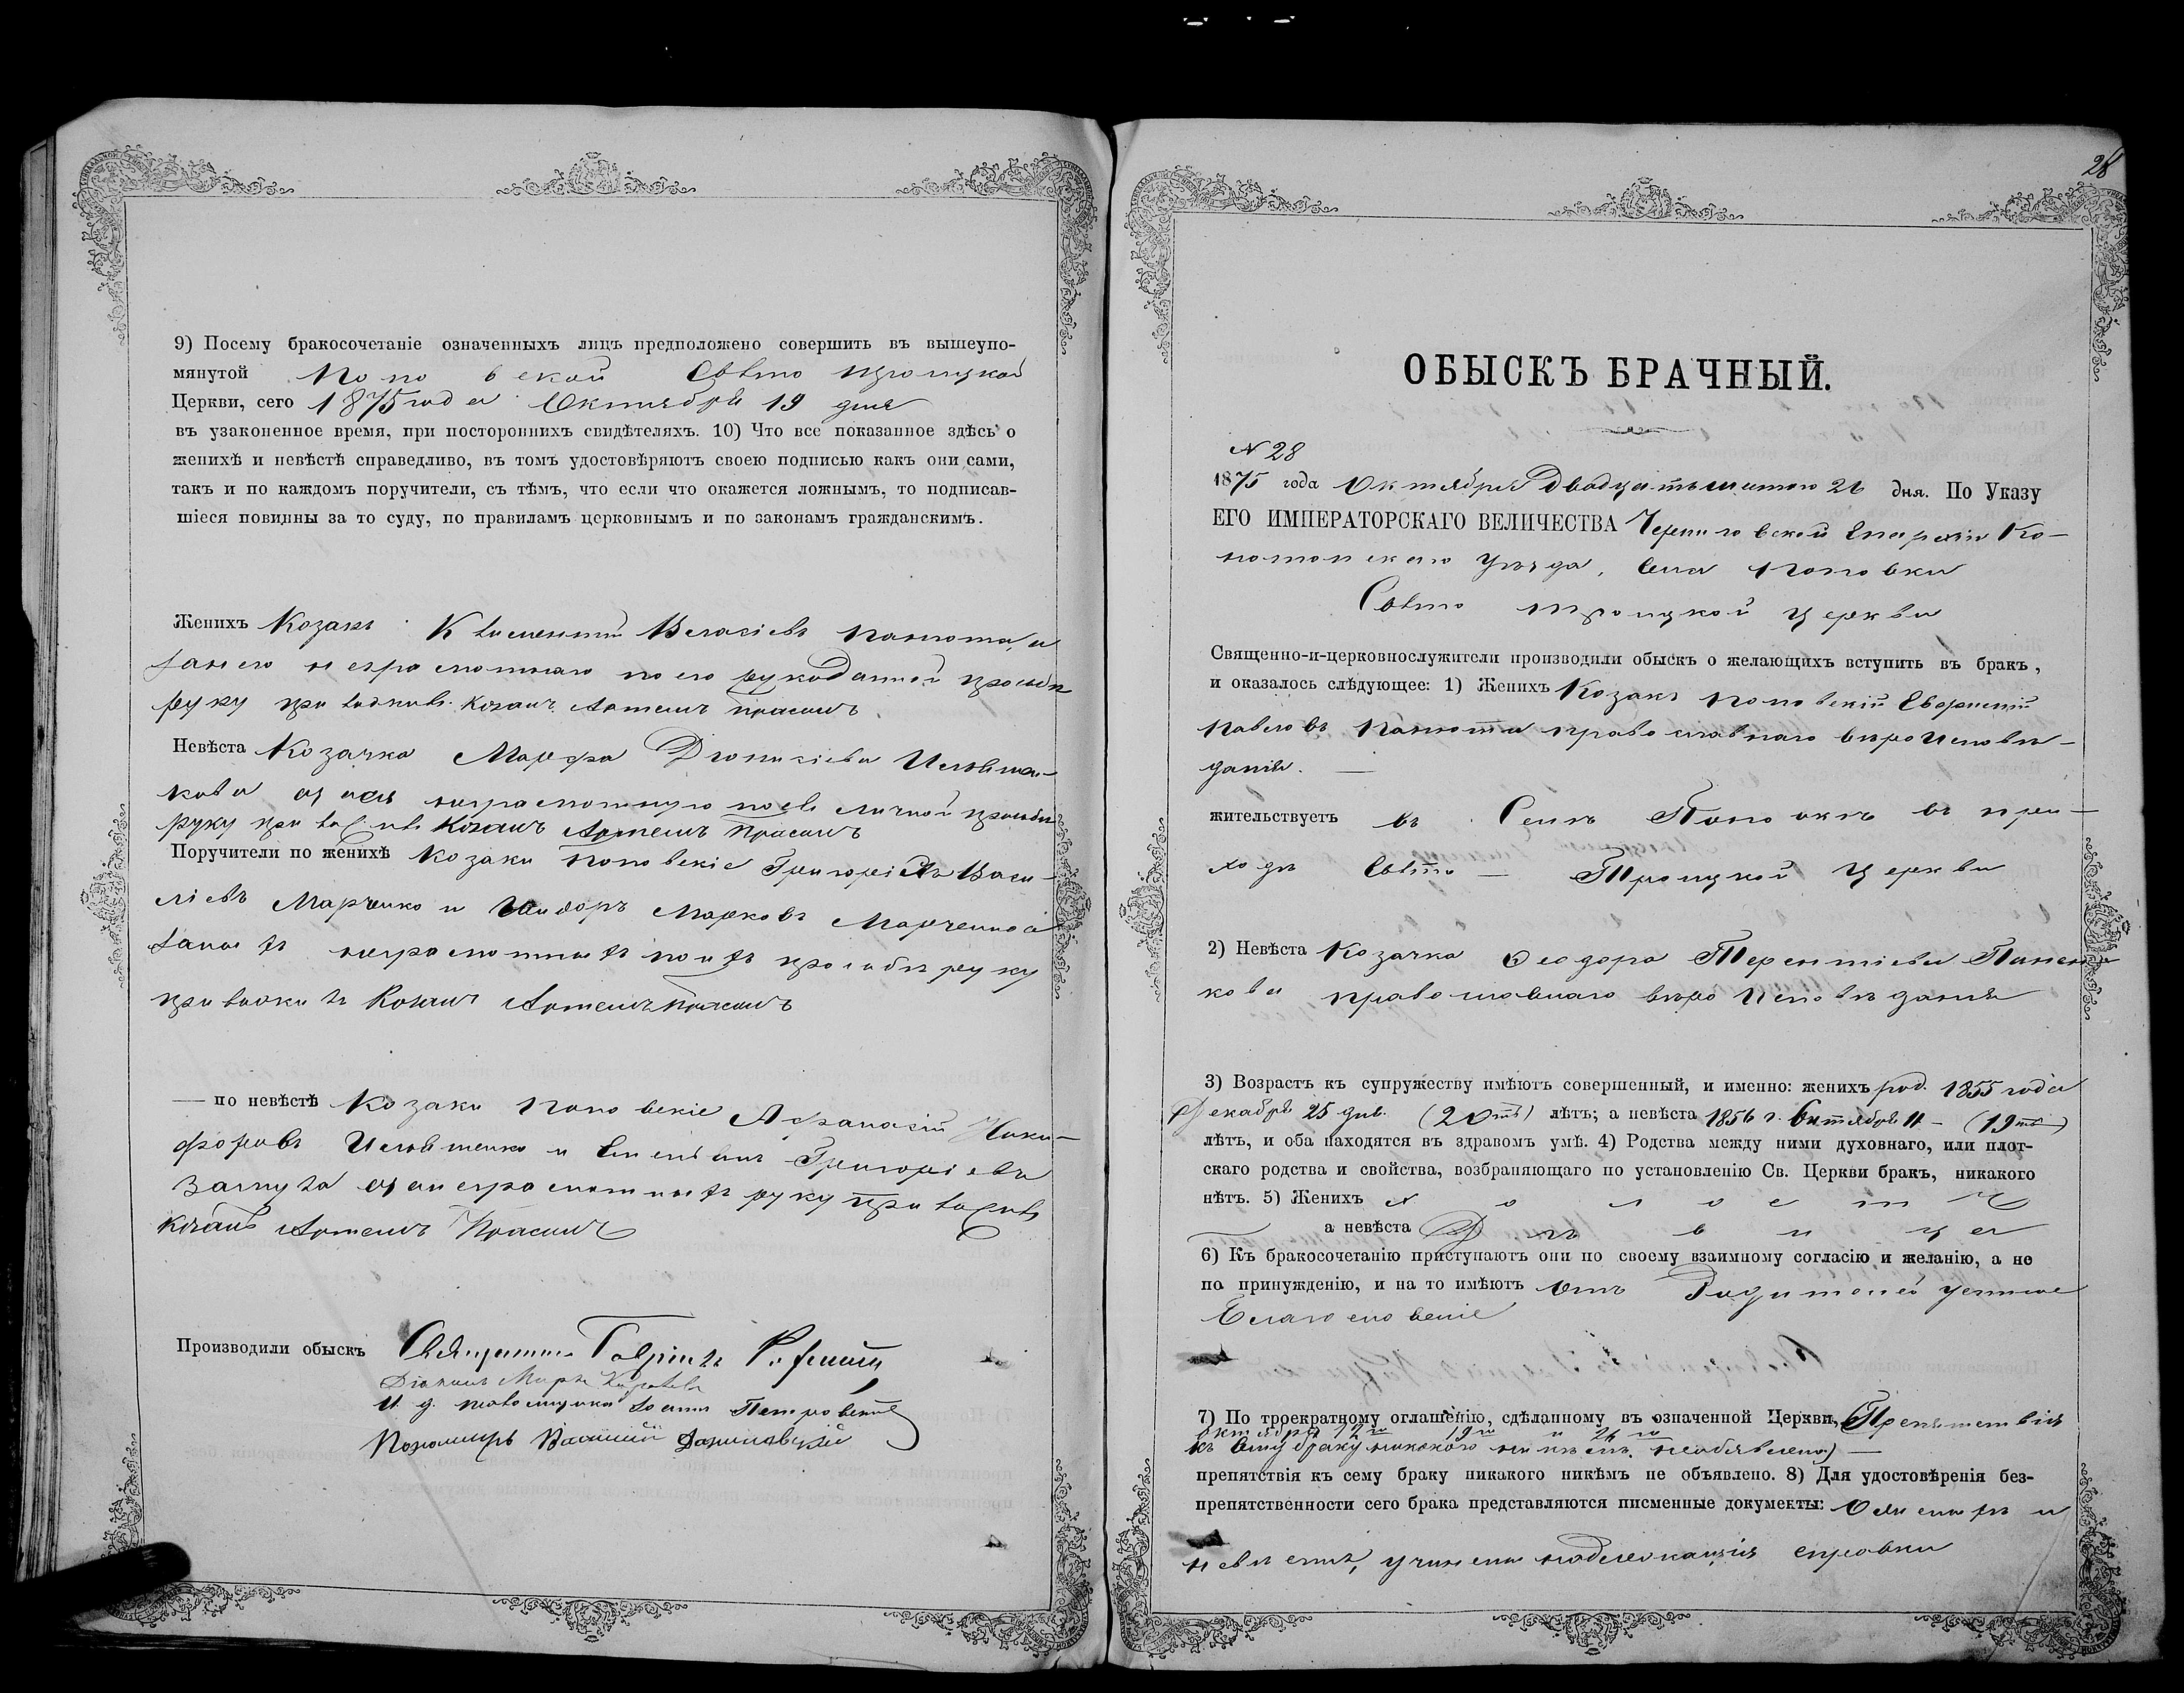 9) Посему бракосочетаніе означенныхъ лицъ предположено совершить въ вышеупо-
мянутой Поповской Свято Троицкой
Церкви, сего 1875 года Октября 19 дня
въ узаконенное время, при постороннихъ свидѣтеляхъ. 10) Что все показанное здѣсь о
женихѣ и невѣстѣ справедливо, въ томъ удостовѣряютъ своею подписью какъ они сами,
такъ и по каждомъ поручители, съ тѣмъ, что если что окажется ложнымъ, то подписав-
шіеся повинны за то суду, по правиламъ церковнымъ и по законамъ гражданскимъ.
Женихъ Козакъ Климентій Власіевъ Панюта, а
за него неграмотнаго по его рукоданной прозьбѣ
руку приложилъ Козакъ Артемъ
Невѣста Козачка Марфа Діонисіева
кова а за неграмотную по ея личной прозьбѣ
руку приложилъ Козакъ Артемъ
Поручители по женихѣ Козаки Поповскіе Григорій Васи-
ліевъ Марченко и Исидоръ Марковъ Марченко а
за нихъ неграмотныхъ по ихъ прозьбѣ руку
приложилъ Козакъ Артемъ
— по невѣстѣ Козаки Поповскіе Афанасій Ники-
форовъ и Григоріевъ
а за неграмотныхъ руку приложилъ
Козакъ Артемъ
Производили обыскъ Священникъ Гавріилъ
Діаконъ Маркъ
И. д. псаломщика Петровскій
Пономарь Василій Даниловскій
28
ОБЫСКЪ БРАЧНЫЙ.
N 28
1875 года Октября Двадцать шестого 26 дня. По Указу
ЕГО ИМПЕРАТОРСКАГО ВЕЛИЧЕСТВА Черниговской Епархіи Ко-
нотопскаго уѣзда, села Поповки
Свято Троицкой Церкви
Священно-и-церковнослужители производили обыскъ о желающихъ вступить въ бракъ,
и оказалось слѣдующее: 1) Женихъ Козакъ Поповскій Евфимій
Павловъ Панюта православнаго вѣроисповѣ-
данія. —
жительствуетъ въ Селѣ Поповкѣ въ при-
ходѣ Свято — Троицкой Церкви
2) Невѣста Козачка Ѳеодора Терентіева
кова православнаго вѣроисповѣданія
3) Возрастъ къ супружеству имѣютъ совершенный, и именно: женихъ род. 1855 года
Декабря 25 дня. (20ть) лѣтъ; а невѣста 1856 г. Октября 11 — (19ть)
лѣтъ, и оба находятся въ здравомъ умѣ. 4) Родства между ними духовнаго, или плот-
скаго родства и свойства, возбраняющаго по установленію Св. Церкви бракъ, никакого
нѣтъ. 5) Женихъ холостъ
а невѣста Дѣвица
6) Къ бракосочетанію приступаютъ они по своему взаимному согласію и желанію, а не
по принужденію, и на то имѣютъ отъ Родителей устное
Благословеніе
7) По троекратному оглашенію, сдѣланному въ означенной Церкви, Препятствія
октября 12го 19го и 26го
къ сему браку никакого никѣмъ необъявлено) —
препятствія къ сему браку никакого никѣмъ не объявлено. 8) Для удостовѣренія без-
препятственности сего брака представляются писменные документы: О женихѣ и
невѣстѣ, учинены надлежащія справки